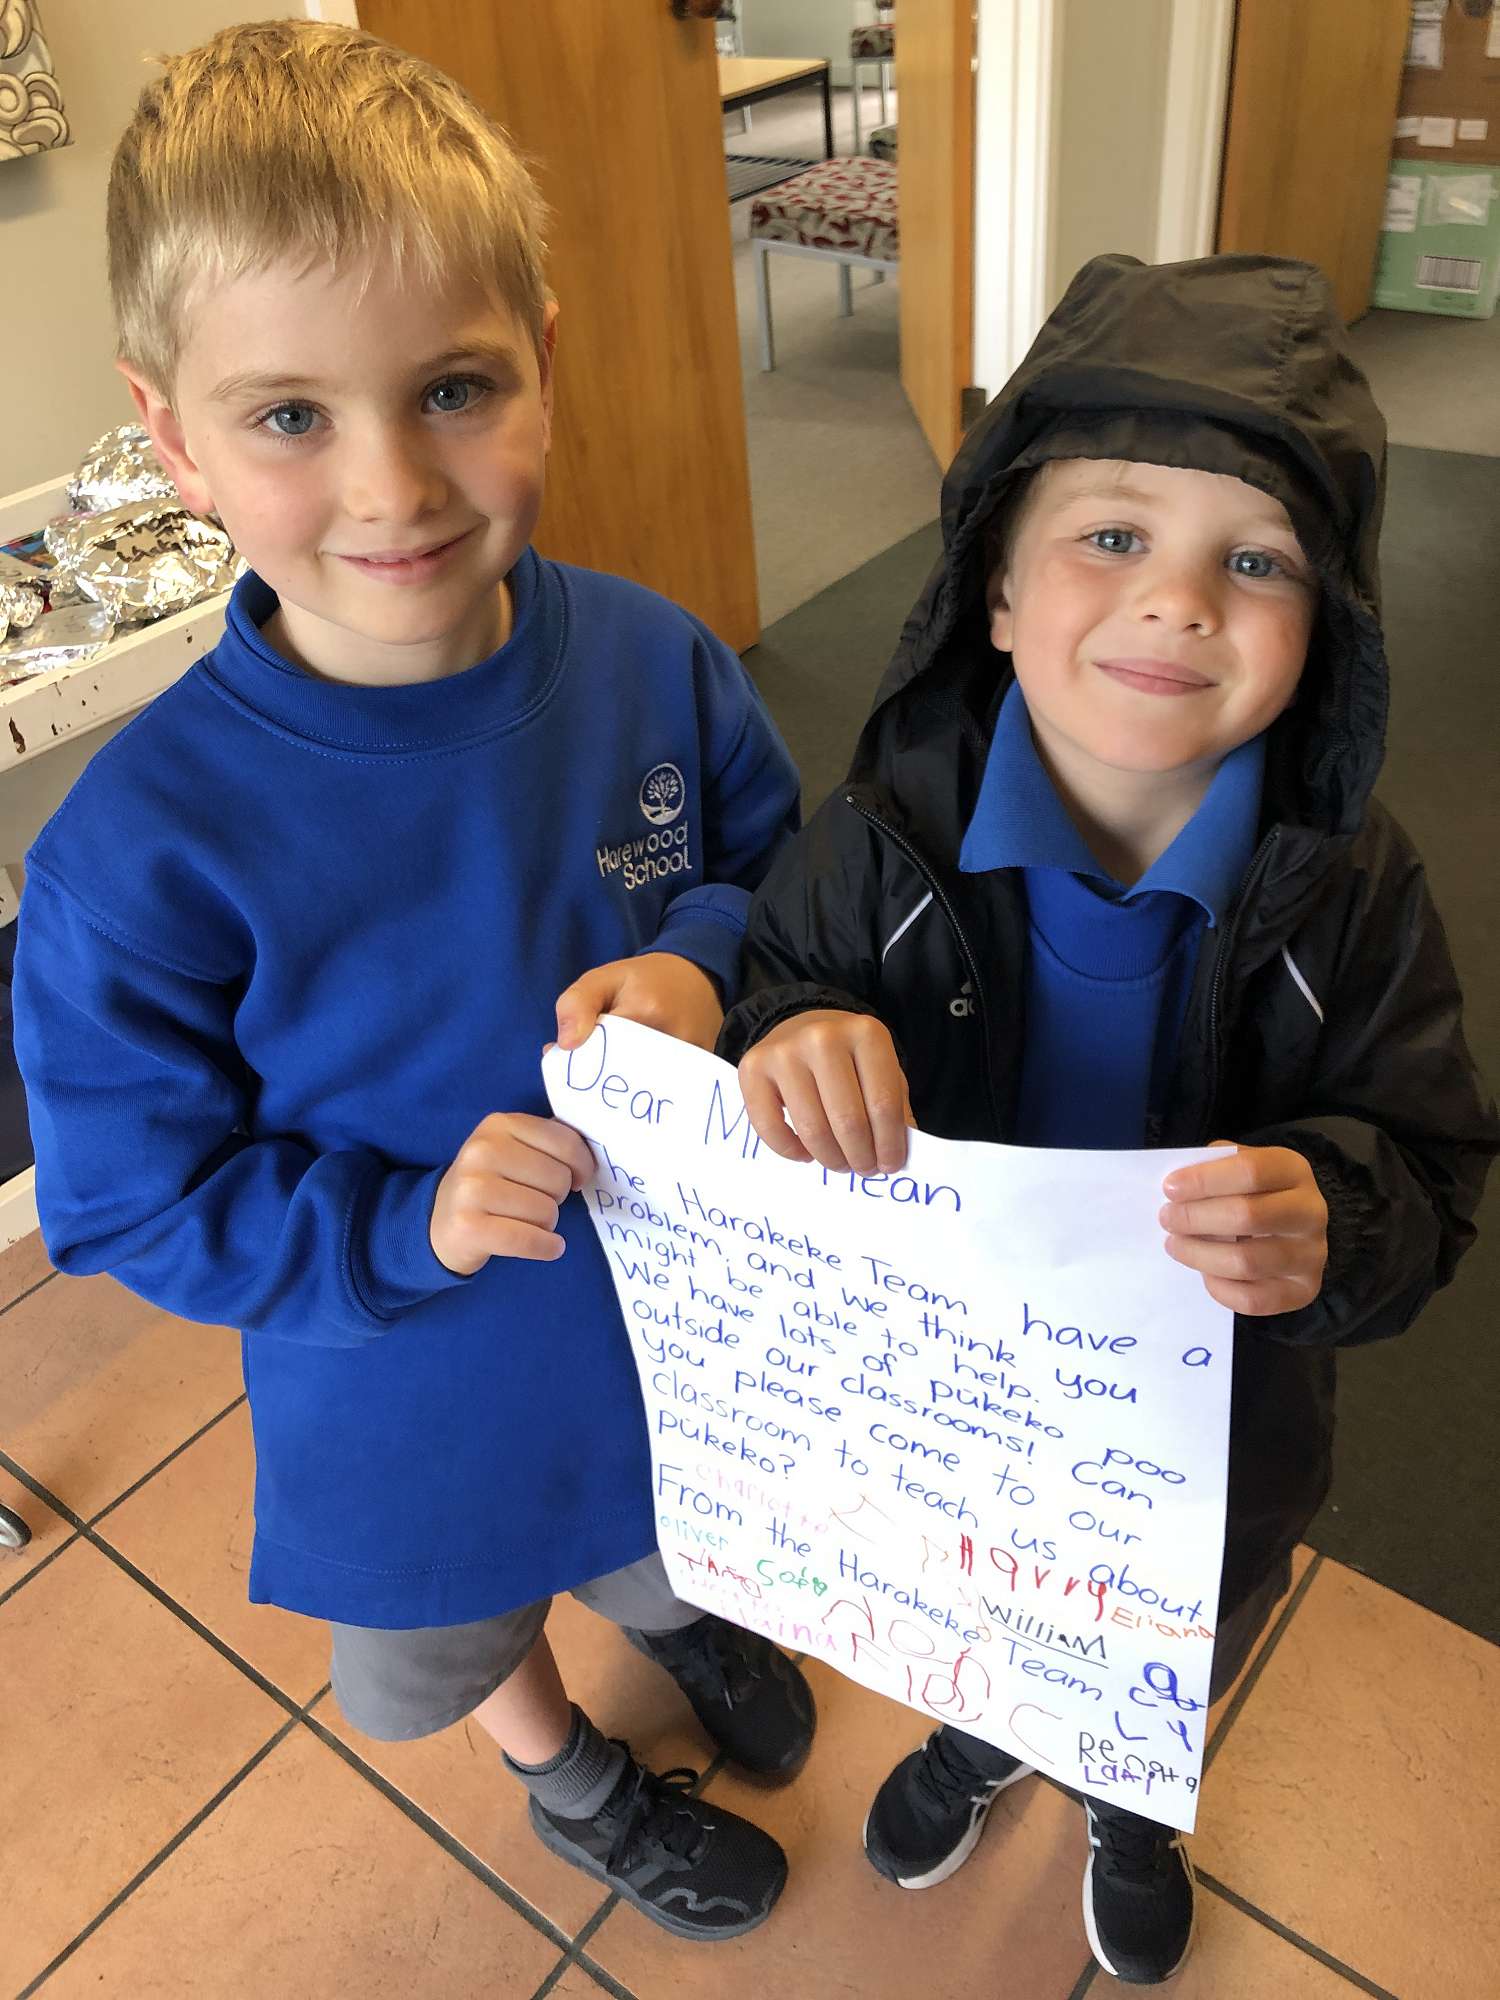 Harewood
School
Dear Mr Hean
The Harakeke Team have a
problem, and we think you
might be able to help.
We have lots of pūkeko poo
outside our classrooms! Can
you please come to our
classroom to teach us about
pūkeko?
From the Harakeke Team
Charlotte
Harry
Eliana
oliver
William
Renata
Lani